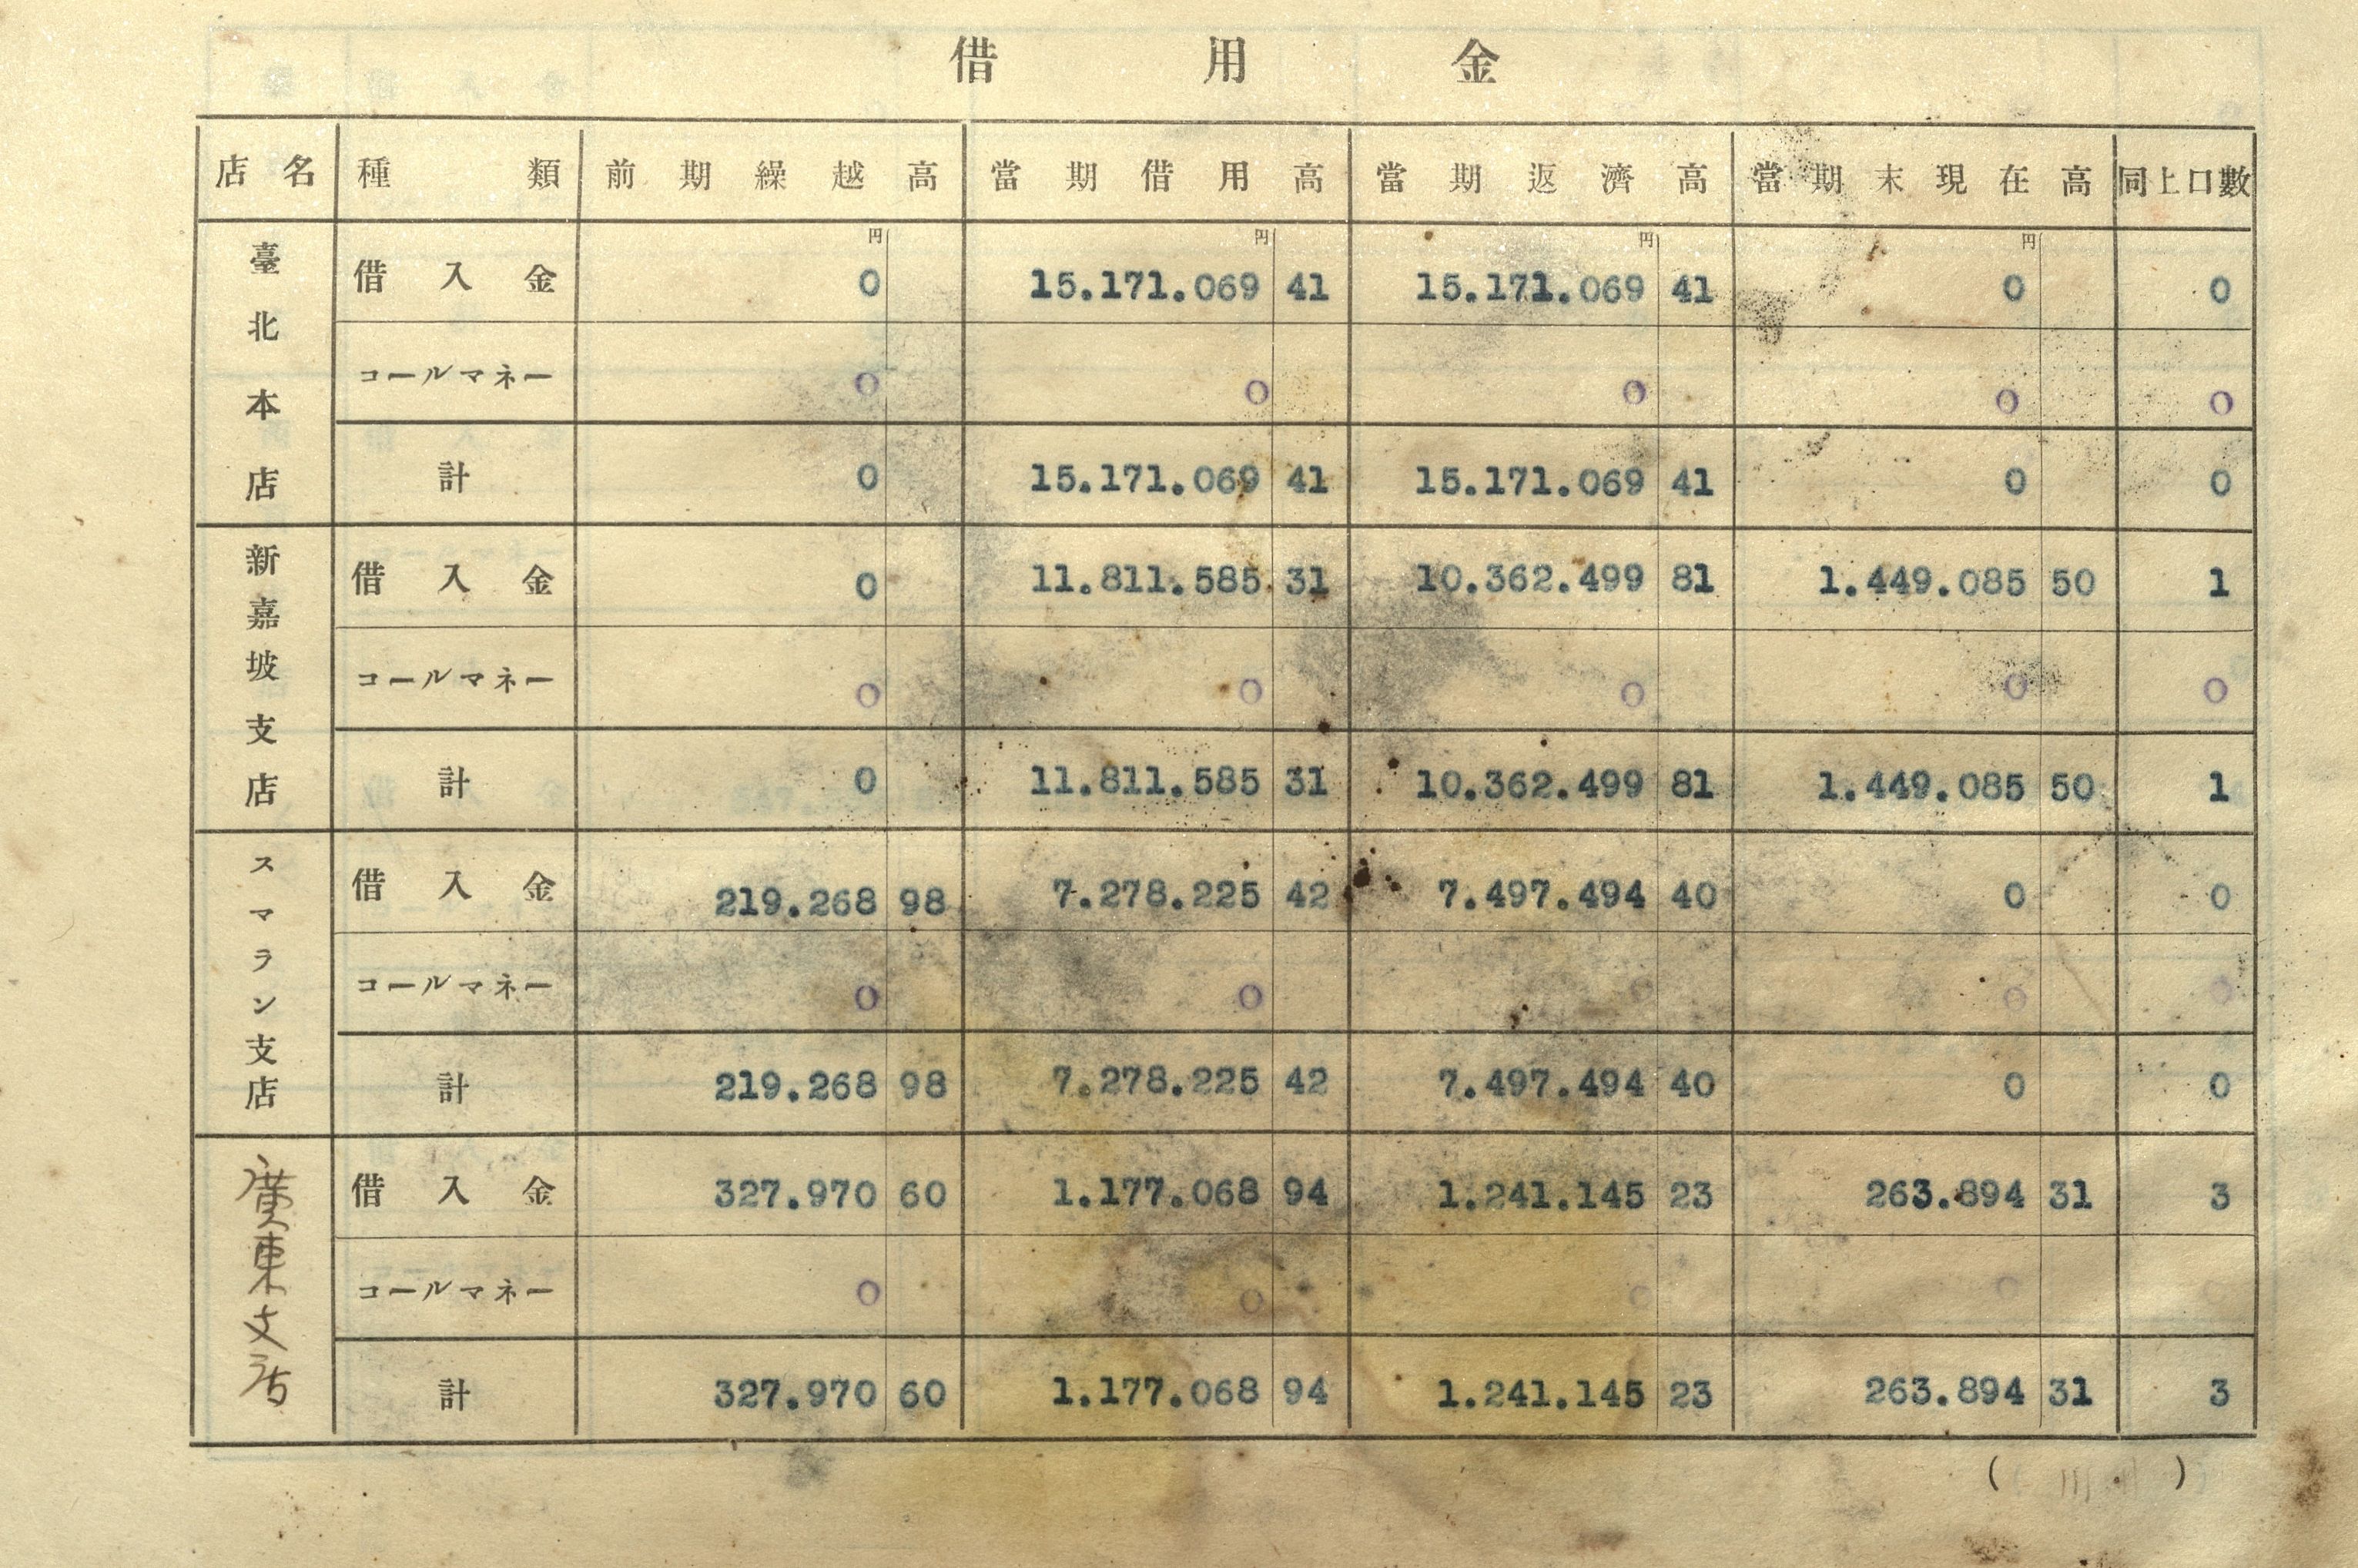 借用金
店名 種類 前期繰越高 當期借用高 當期返濟高 當期末現在高 同上口數
円 円 円 円
臺北本店
借入金 0 15.171.069 41 15.171.069 41 0 0
コールマネー 0 0 0 0 0
計 0 15.171.069 41 15.171.069 41 0 0
新嘉坡支店
借入金 0 11.811.585 31 10.362.499 81 1.449.085 50 1
コールマネー 0 0 0 0 0
計 0 11.811.585 31 10.362.499 81 1.449.085 50 1
スマラン支店
借入金 219.268 98 7.278.225 42 7.497.494 40 0 0
コールマネー 0 0 0 0 0
計 219.268 98 7.278.225 42 7.497.494 40 0 0
廣東支店
借入金 327.970 60 1.177.068 94 1.241.145 23 263.894 31 3
コールマネー 0 0 0 0
計 327.970 60 1.177.068 94 1.241.145 23 263.894 31 3